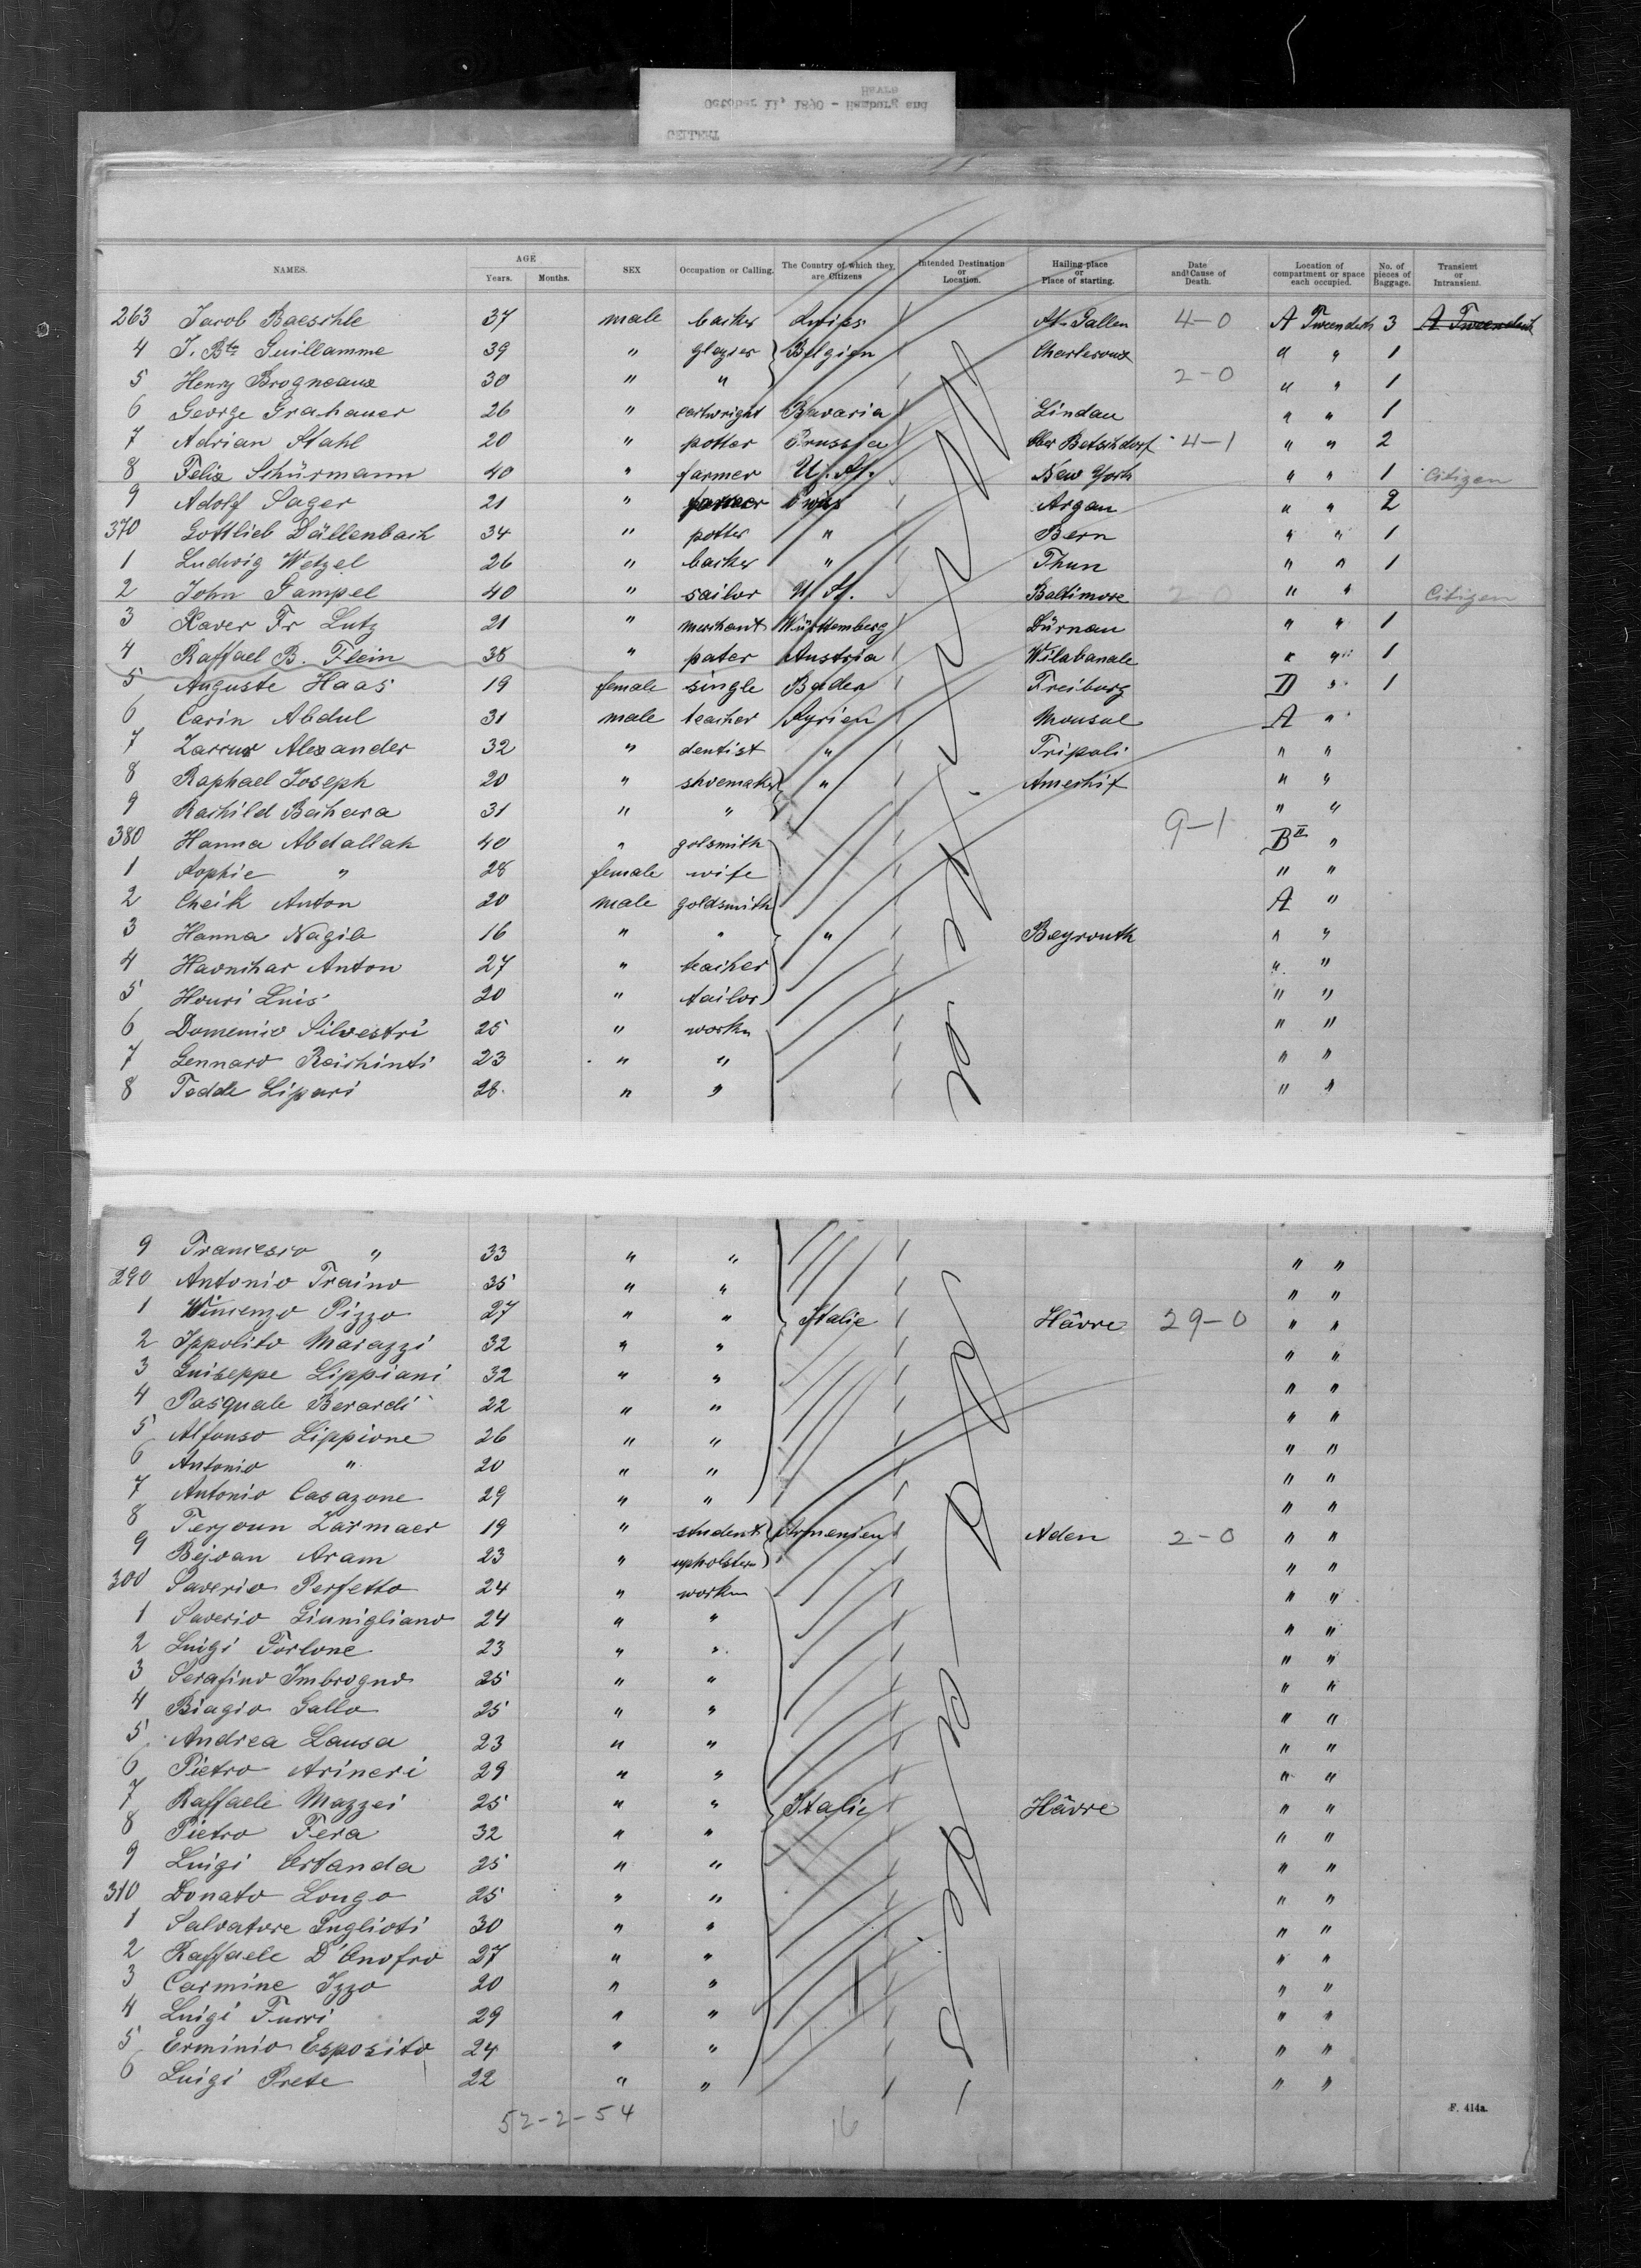 Havre
October 11, 1890 - Hamburg and
GELLERT
NAMES. AGE Years. Months. SEX Occupation or Calling. The Country of which they are Citizens Intended Destination or Location. Hailing place or Place of starting. Date and Cause of Death. Location of compartment or space each occupied. No. of pieces of Baggage. Transient or Intransient.
263 Jacob Baeschle 37 male St. Gallen 4-0 A Tweendeck 3 A Tweendeck
4 J. Bte Guillamme 39 " glazier Belgien " " 1
5 Henry Brogneaux 30 " " 2-0 " " 1
6 George Grahauer 26 " cartwright Bavaria Lindau " " 1
7 Adrian Stahl 20 " potter Prussia Ober Betschdorf 4-1 " " 2
8 Felix Schürmann 40 " farmer U. St. New York " " 1 Citizen
9 Adolf Sager 21 " Swiss Argau " " 2
370 Gottlieb Dällenbach 34 " potter " Bern " " 1
1 Ludwig Wetzel 26 " " Thun " " 1
2 John Gampel 40 " sailor U. St. Baltimore 2-0 " " Citizen
3 Xaver Fr Lutz 21 " merchant Württemberg Dürnau " " 1
4 Raffael B. Flein 38 " pater Austria " " 1
5 Auguste Haas 19 female single Baden Freiburg D " 1
6 Carin Abdul 31 male teacher Syrien Mousul A "
7 Alexander 32 " dentist " Tripoli " "
8 Raphael Joseph 20 " shoemaker " " "
9 Rachild Bechara 31 " " " "
380 Hanna Abdallah 40 " golsmith 9-1 B II "
1 Sophie " 28 female wife " "
2 Cheik Anton 20 male goldsmith A "
3 Hanna Nagib 16 " " " Beyrouth " "
4 Anton 27 " teacher " "
5 Houri Luis 20 " tailor " "
6 Domenico Silvestri 25 " workm " "
7 Gennaro 23 " " " "
8 Lipari 28 " " " "
9 Francesco " 33 " " " "
290 Antonio Traino 35 " " " "
1 Wincenzo Pizzo 27 " " Italie Hâvre 29-0 " "
2 Ippolito Marazzi 32 " " " "
3 Guiseppe Lippiani 32 " " " "
4 Pasquale Berardi 22 " " " "
5 Alfonso Lippione 26 " " " "
6 Antonio " 20 " " " "
7 Antonio Casazone 29 " " " "
8 Zarmaer 19 " student Armenien Aden 2-0 " "
9 Aram 23 " upholster " "
300 Saverio Perfetto 24 " workm " "
1 Saverio Giunigliano 24 " " " "
2 Luigi Forlone 23 " " " "
3 Serafino Imbrogno 25 " " " "
4 Biagio Gallo 25 " " " "
5 Andrea Lausa 23 " " " "
6 Pietro Arineri 29 " " " "
7 Raffaele Mazzei 25 " " Italie Hâvre " "
8 Pietro Fera 32 " " " "
9 Luigi 25 " " " "
310 Donato Longo 25 " " " "
1 Salvatore Puglioti 30 " " " "
2 Raffaele D'Onofro 27 " " " "
3 Carmine Izzo 20 " " " "
4 Luigi 29 " " " "
5 Erminio Esposito 24 " " " "
6 Luigi Prete 22 " " " "
52-2-54 16
F. 414a.